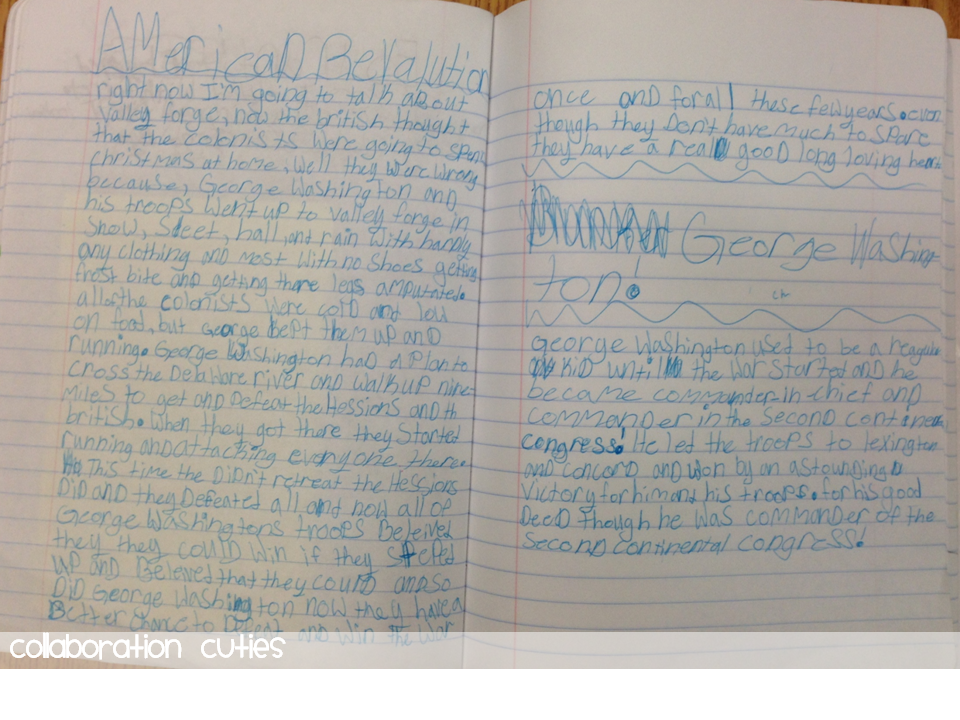 AMericaN Revalution
right now I'm going to talk about
valley forge, now the british thought
that the colonists were going to spend
christmas at home, well they were wrong
because, George Washington and
his troops went up to valley forge in
snow, sleet, hall, and rain with handly
any clothing and most with no shoes getting
frost bite and getting there legs amputated.
all of the colonists were cold and low
on food, but George kept them up and
running. George Washington had a plan to
cross the Delaware river and walk up nine
miles to get and Defeat the Hessions and th
british. When they got there they started
running and attacking everyone there.
This time the Didn't retreat the Hessions
Did and they Defeated all and now all of
George Washingtons troops Beleived
they they could win if they steped
up and Beleved that they could and so
Did George Washington now they have a
Better chance to Defeat and win the war
once and for all these few years. even
though they Don't have much to spare
they have a real good long loving heart
George Washing
ton!
George Washington used to be a reggular
kid until the war started and he
became commander-in-chief and
commander in the second continental
congress! He led the troops to lexington
and concord and won by an astounding
victory for him and his troops. for his good
Deed though he was commander of the
second continental congress!
collaboration cuties